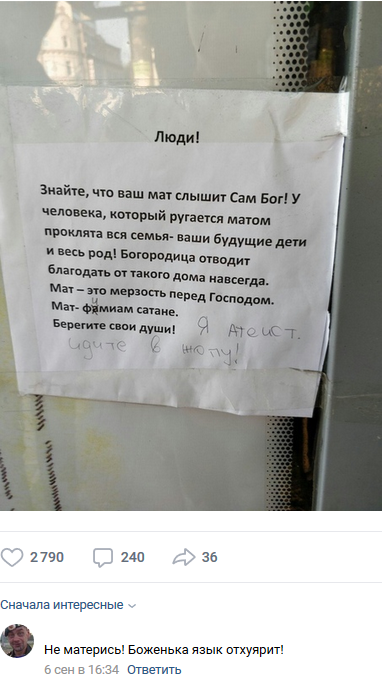 Люди!
Знайте, что ваш мат слышит Сам Бог! У
человека, который ругается матом
проклята вся семья- ваши будущие дети
и весь род! Богородица отводит
благодать от такого дома навсегда.
Мат – это мерзость перед Господом.
Мат- фимиам сатане.
Берегите свои души! Я атеист.
идите в жопу!
2 790 240 36
Сначала интересные
Не матерись! Боженька язык отхуярит!
6 сен в 16:34 Ответить